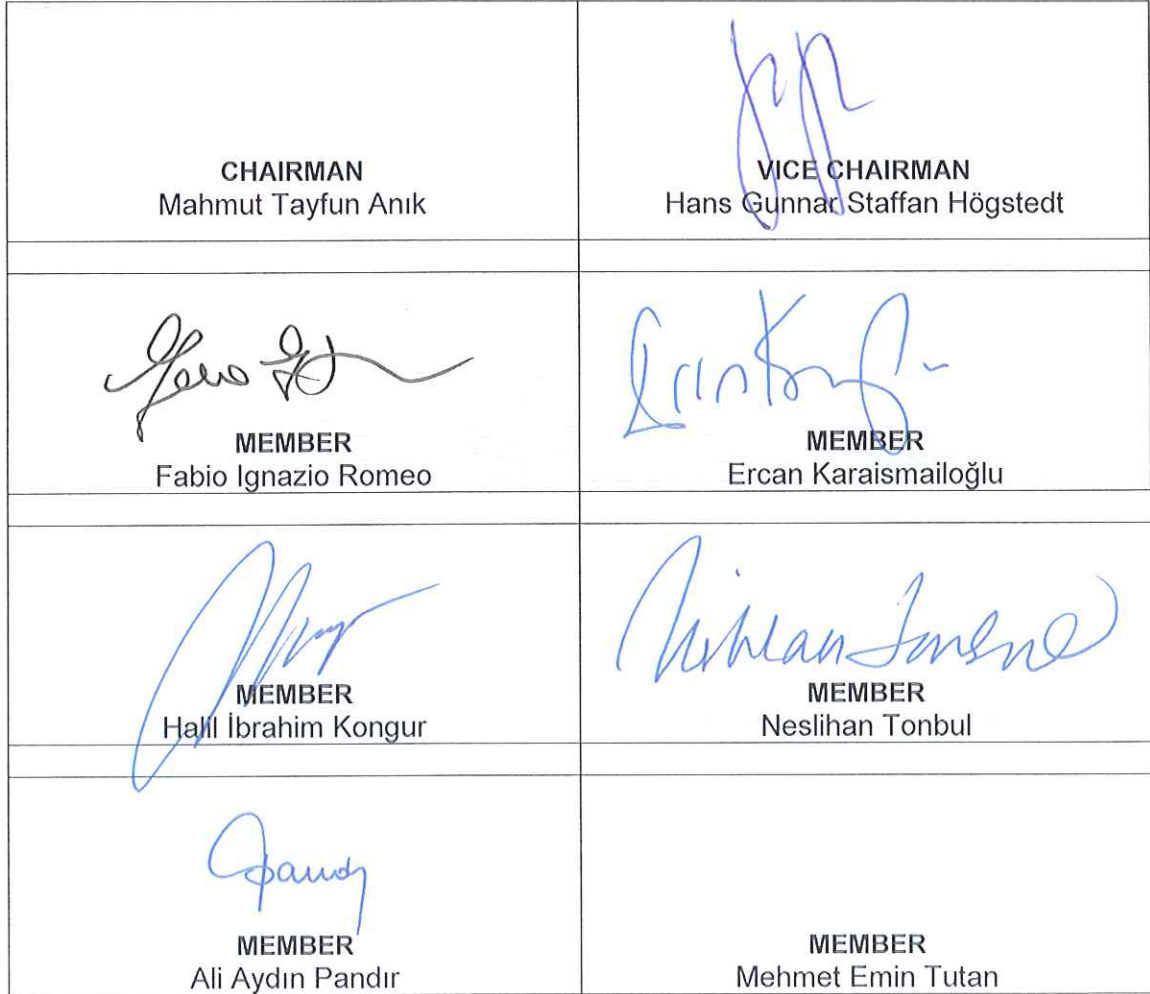 CHAIRMAN
Mahmut Tayfun Anık
VICE CHAIRMAN
Hans Gunnar Staffan Högstedt
MEMBER
Fabio Ignazio Romeo
MEMBER
Ercan Karaismailoğlu
MEMBER
Halil İbrahim Kongur
MEMBER
Neslihan Tonbul
MEMBER
Ali Aydın Pandır
MEMBER
Mehmet Emin Tutan